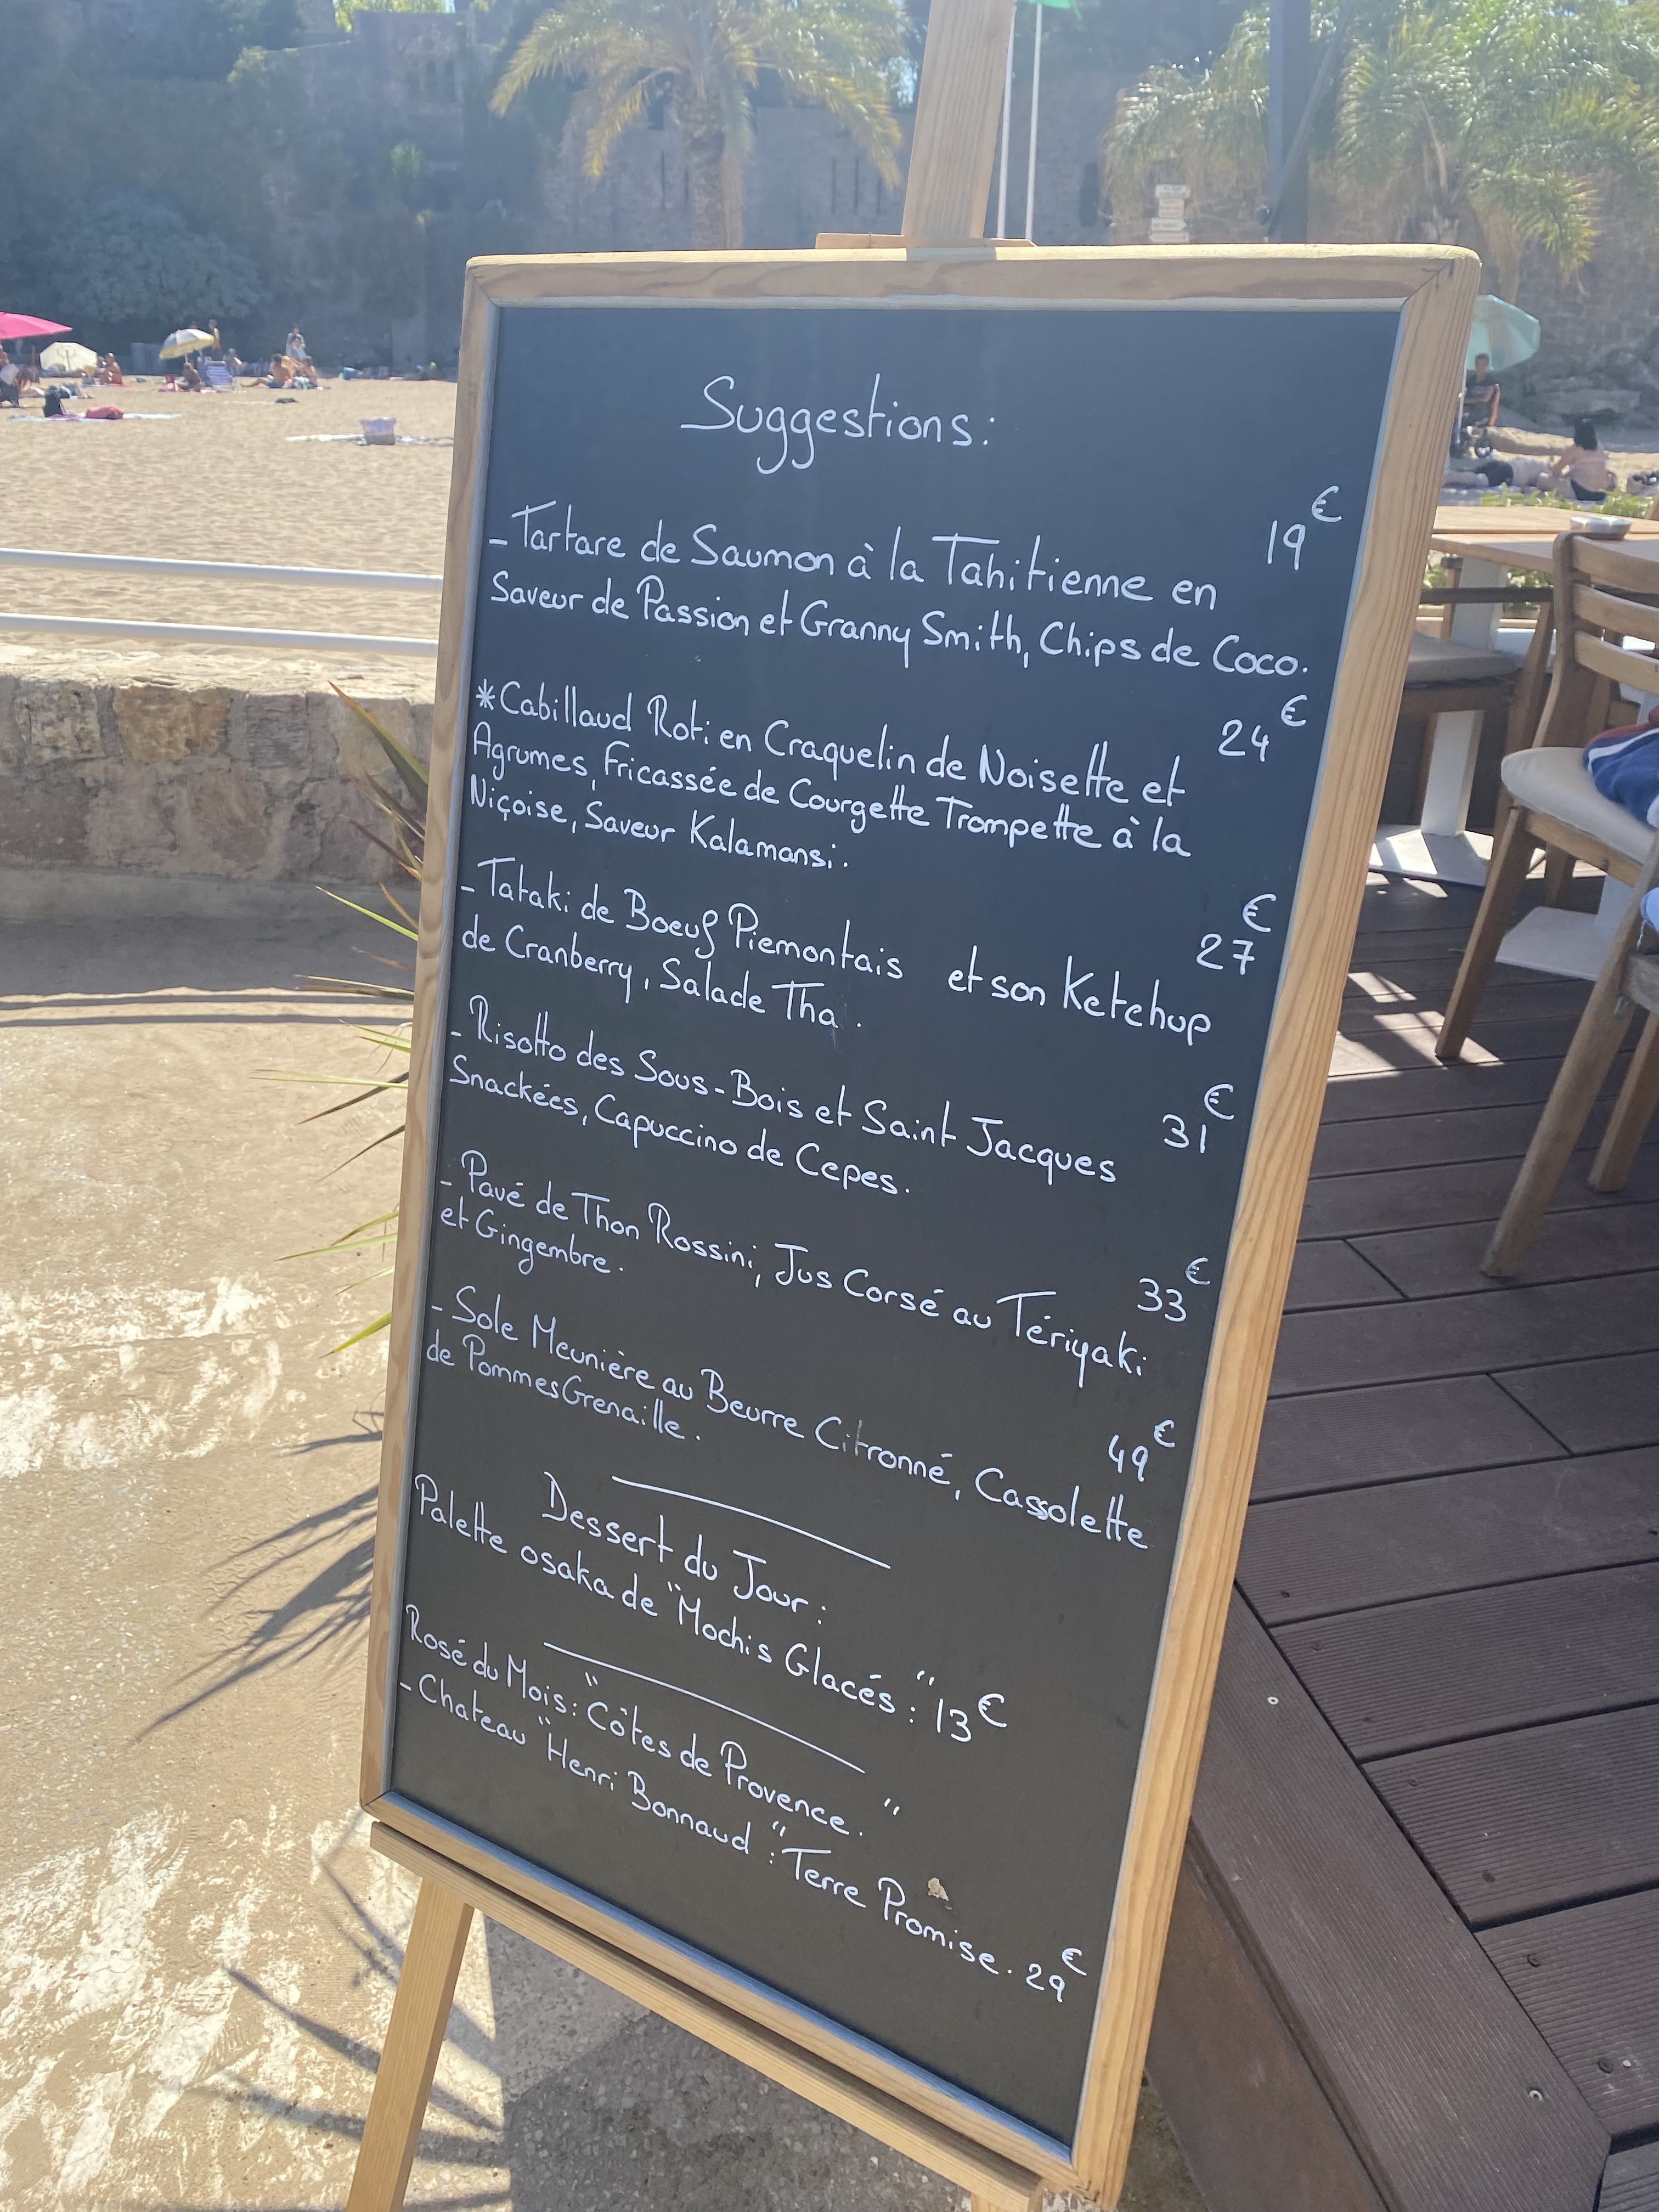 Suggestions:
19€
- Tartare de Saumon à la Tahitienne en
Saveur de Passion et Granny Smith, Chips de Coco.
24€
*Cabillaud Roti en Craquelin de Noisette et
Agrumes, Fricassée de Courgette Trompette à la
Niçoise, Saveur Kalamansi.
27€
- Tataki de Boeuf Piemontais et son Ketchup
de Cranberry, Salade Tha.
31€
- Risotto des Sous-Bois et Saint Jacques
Snackées, Capuccino de Cepes.
33€
- Pavé de Thon Rossini, Jus Corsé au Tériyaki
et Gingembre.
49€
- Sole Meunière au Beurre Citronné, Cassolette
de Pommes Grenaille.
Dessert du Jour:
Palette osaka de "Mochis Glacés:" 13€
Rosé du Mois: "Côtes de Provence."
- Chateau "Henri Bonnaud": Terre Promise. 29€